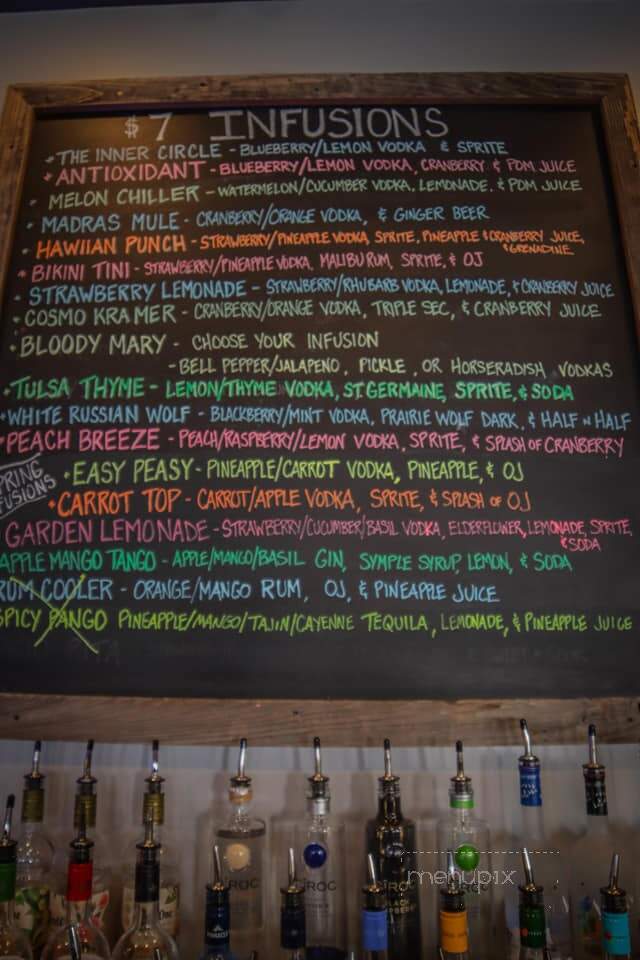 $7 INFUSIONS
• THE INNER CIRCLE - BLUEBERRY/LEMON VODKA & SPRITE
• ANTIOXIDANT - BLUEBERRY/LEMON VODKA, CRANBERRY & POM JUICE
• MELON CHILLER - WATERMELON/CUCUMBER VODKA, LEMONADE, & POM JUICE
• MADRAS MULE - CRANBERRY/ORANGE VODKA, & GINGER BEER
• HAWIIAN PUNCH - STRAWBERRY/PINEAPPLE VODKA, SPRITE, PINEAPPLE & CRANBERRY JUICE,
& GRENADINE
• BIKINI TINI - STRAWBERRY/PINEAPPLE VODKA, MALIBU RUM, SPRITE, & OJ
• STRAWBERRY LEMONADE - STRAWBERRY/RHUBARB VODKA, LEMONADE, & CRANBERRY JUICE
• COSMO KRAMER - CRANBERRY/ORANGE VODKA, TRIPLE SEC, & CRANBERRY JUICE
• BLOODY MARY - CHOOSE YOUR INFUSION
- BELL PEPPER/JALAPENO, PICKLE, OR HORSERADISH VODKAS
• TULSA THYME - LEMON/THYME VODKA, ST. GERMAINE, SPRITE, & SODA
• WHITE RUSSIAN WOLF - BLACKBERRY/MINT VODKA, PRAIRIE WOLF DARK, & HALF N HALF
• PEACH BREEZE - PEACH/RASPBERRY/LEMON VODKA, SPRITE, & SPLASH OF CRANBERRY
PRING
FUSIONS
• EASY PEASY - PINEAPPLE/CARROT VODKA, PINEAPPLE, & OJ
• CARROT TOP - CARROT/APPLE VODKA, SPRITE, & SPLASH OF OJ
GARDEN LEMONADE - STRAWBERRY/CUCUMBER/BASIL VODKA, ELDERFLOWER, LEMONADE, SPRITE,
& SODA
APPLE MANGO TANGO - APPLE/MANGO/BASIL GIN, SYMPLE SYRUP, LEMON, & SODA
RUM COOLER - ORANGE/MANGO RUM, OJ, & PINEAPPLE JUICE
SPICY PANGO PINEAPPLE/MANGO/TAJIN/CAYENNE TEQUILA, LEMONADE, & PINEAPPLE JUICE
menupix